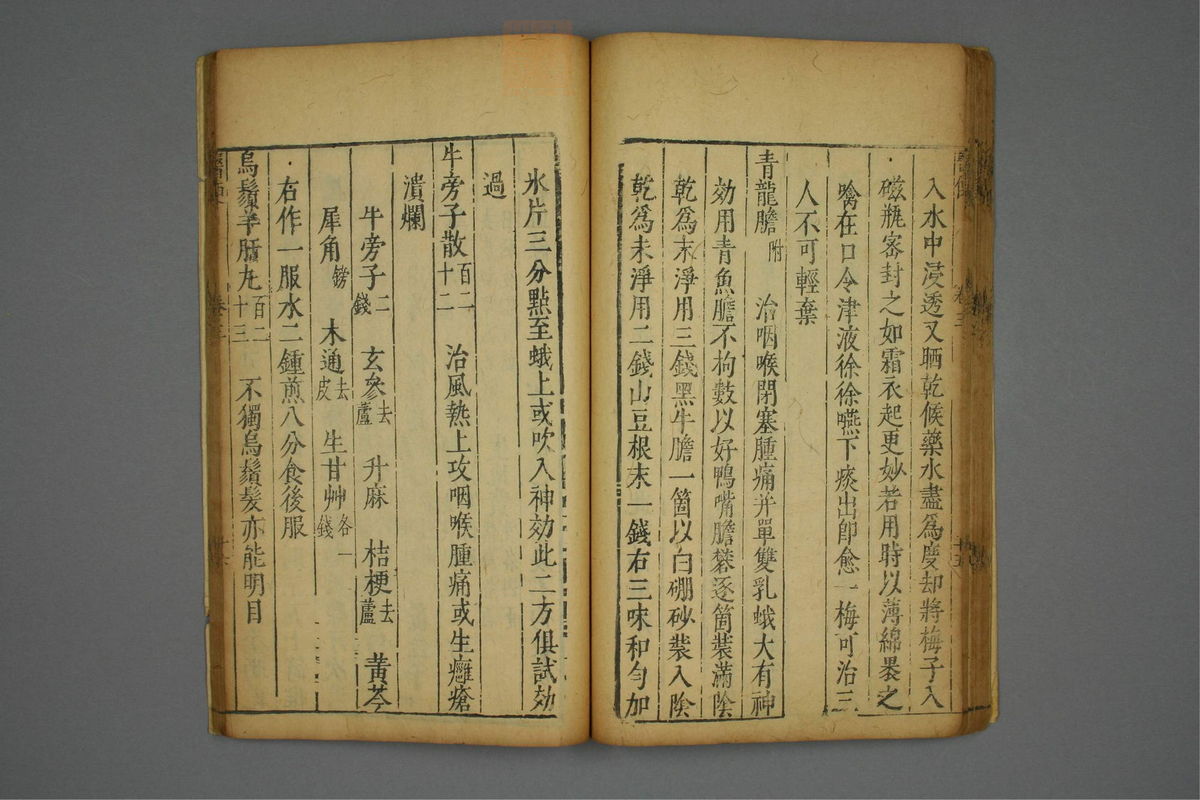 入水中浸透又晒乾候藥水盡爲度却將梅子入
磁瓶密封之如霜衣起更妙若用時以薄綿褁之
噙在口令津液徐徐嚥下痰出卽愈一梅可治三
人不可輕棄
青龍膽 附 治咽喉閉塞腫痛并單雙乳蛾大有神
効用青魚膽不拘數以好鴨嘴膽礬逐箇裝滿陰
乾爲末淨用三錢黑牛膽一箇以白硼砂裝入陰
乾爲末淨用二錢山豆根末一錢右三味和勻加
氷片三分點至蛾上或吹入神効此二方俱試効
過
牛旁子散 百二十二 治風熱上攻咽喉腫痛或生癰瘡
潰爛
牛旁子 二錢 玄參 去蘆 升麻 桔梗 去蘆 黃芩
犀角 鎊 木通 去皮 生甘艸 各一錢
右作一服水二鍾煎八分食後服
烏鬚羊肝丸 百二十三 不獨烏鬚髮亦能明目
卷三